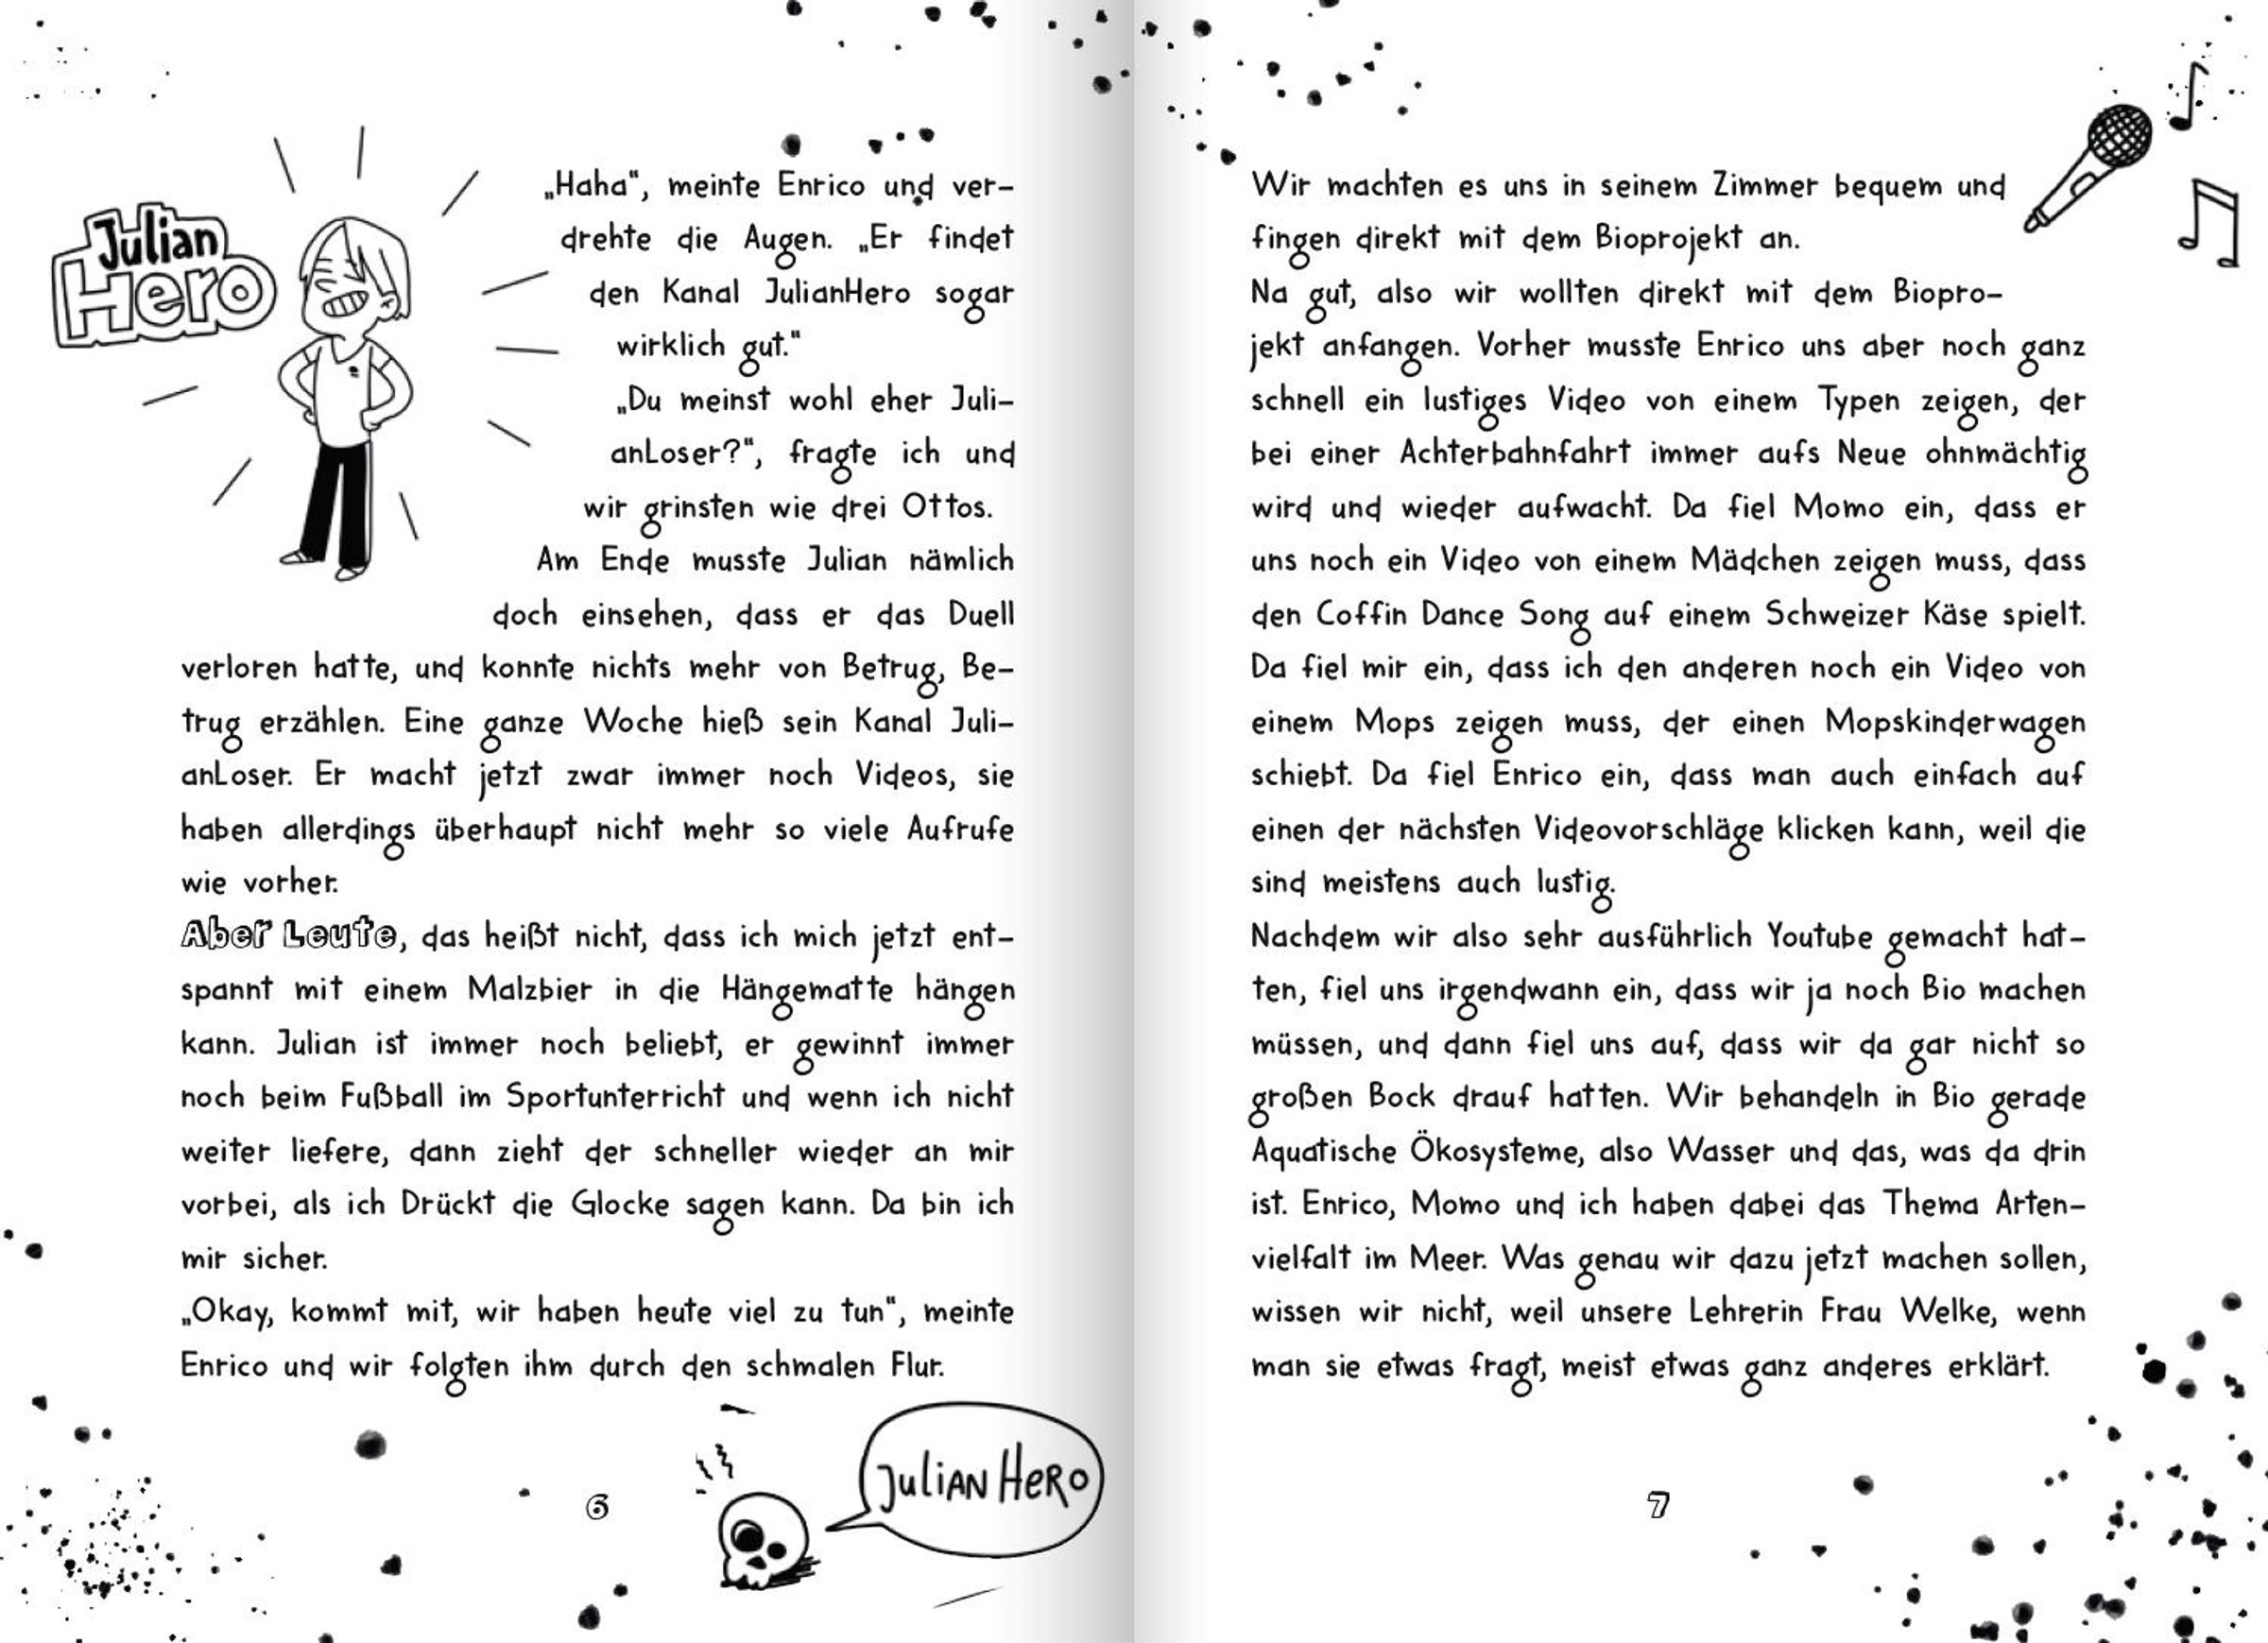 Julian
Hero
„Haha", meinte Enrico und ver-
drehte die Augen. „Er findet
den Kanal JulianHero sogar
wirklich gut."
„Du meinst wohl eher Juli-
anLoser?", fragte ich und
wir grinsten wie drei Ottos.
Am Ende musste Julian nämlich
doch einsehen, dass er das Duell
verloren hatte, und konnte nichts mehr von Betrug, Be-
trug erzählen. Eine ganze Woche hieß sein Kanal Juli-
anLoser. Er macht jetzt zwar immer noch Videos, sie
haben allerdings überhaupt nicht mehr so viele Aufrufe
wie vorher.
Aber Leute, das heißt nicht, dass ich mich jetzt ent-
spannt mit einem Malzbier in die Hängematte hängen
kann. Julian ist immer noch beliebt, er gewinnt immer
noch beim Fußball im Sportunterricht und wenn ich nicht
weiter liefere, dann zieht der schneller wieder an mir
vorbei, als ich Drückt die Glocke sagen kann. Da bin ich
mir sicher.
„Okay, kommt mit, wir haben heute viel zu tun", meinte
Enrico und wir folgten ihm durch den schmalen Flur.
Julian Hero
6
Wir machten es uns in seinem Zimmer bequem und
fingen direkt mit dem Bioprojekt an.
Na gut, also wir wollten direkt mit dem Biopro-
jekt anfangen. Vorher musste Enrico uns aber noch ganz
schnell ein lustiges Video von einem Typen zeigen, der
bei einer Achterbahnfahrt immer aufs Neue ohnmächtig
wird und wieder aufwacht. Da fiel Momo ein, dass er
uns noch ein Video von einem Mädchen zeigen muss, dass
den Coffin Dance Song auf einem Schweizer Käse spielt.
Da fiel mir ein, dass ich den anderen noch ein Video von
einem Mops zeigen muss, der einen Mopskinderwagen
schiebt. Da fiel Enrico ein, dass man auch einfach auf
einen der nächsten Videovorschläge klicken kann, weil die
sind meistens auch lustig.
Nachdem wir also sehr ausführlich Youtube gemacht hat-
ten, fiel uns irgendwann ein, dass wir ja noch Bio machen
müssen, und dann fiel uns auf, dass wir da gar nicht so
großen Bock drauf hatten. Wir behandeln in Bio gerade
Aquatische Ökosysteme, also Wasser und das, was da drin
ist. Enrico, Momo und ich haben dabei das Thema Arten-
vielfalt im Meer. Was genau wir dazu jetzt machen sollen,
wissen wir nicht, weil unsere Lehrerin Frau Welke, wenn
man sie etwas fragt, meist etwas ganz anderes erklärt.
7